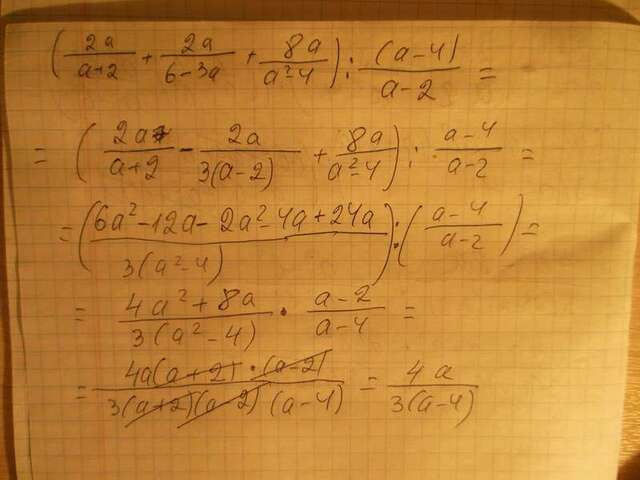 (2a/(a+2) + 2a/(6-3a) + 8a/(a²-4)) : (a-4)/(a-2) =
= (2a/(a+2) - 2a/(3(a-2)) + 8a/(a²-4)) : (a-4)/(a-2) =
= ((6a²-12a-2a²-4a+24a)/(3(a²-4))) : ((a-4)/(a-2)) =
= (4a²+8a)/(3(a²-4)) · (a-2)/(a-4) =
= (4a(a+2)·(a-2))/(3(a+2)(a-2)(a-4)) = 4a/(3(a-4))